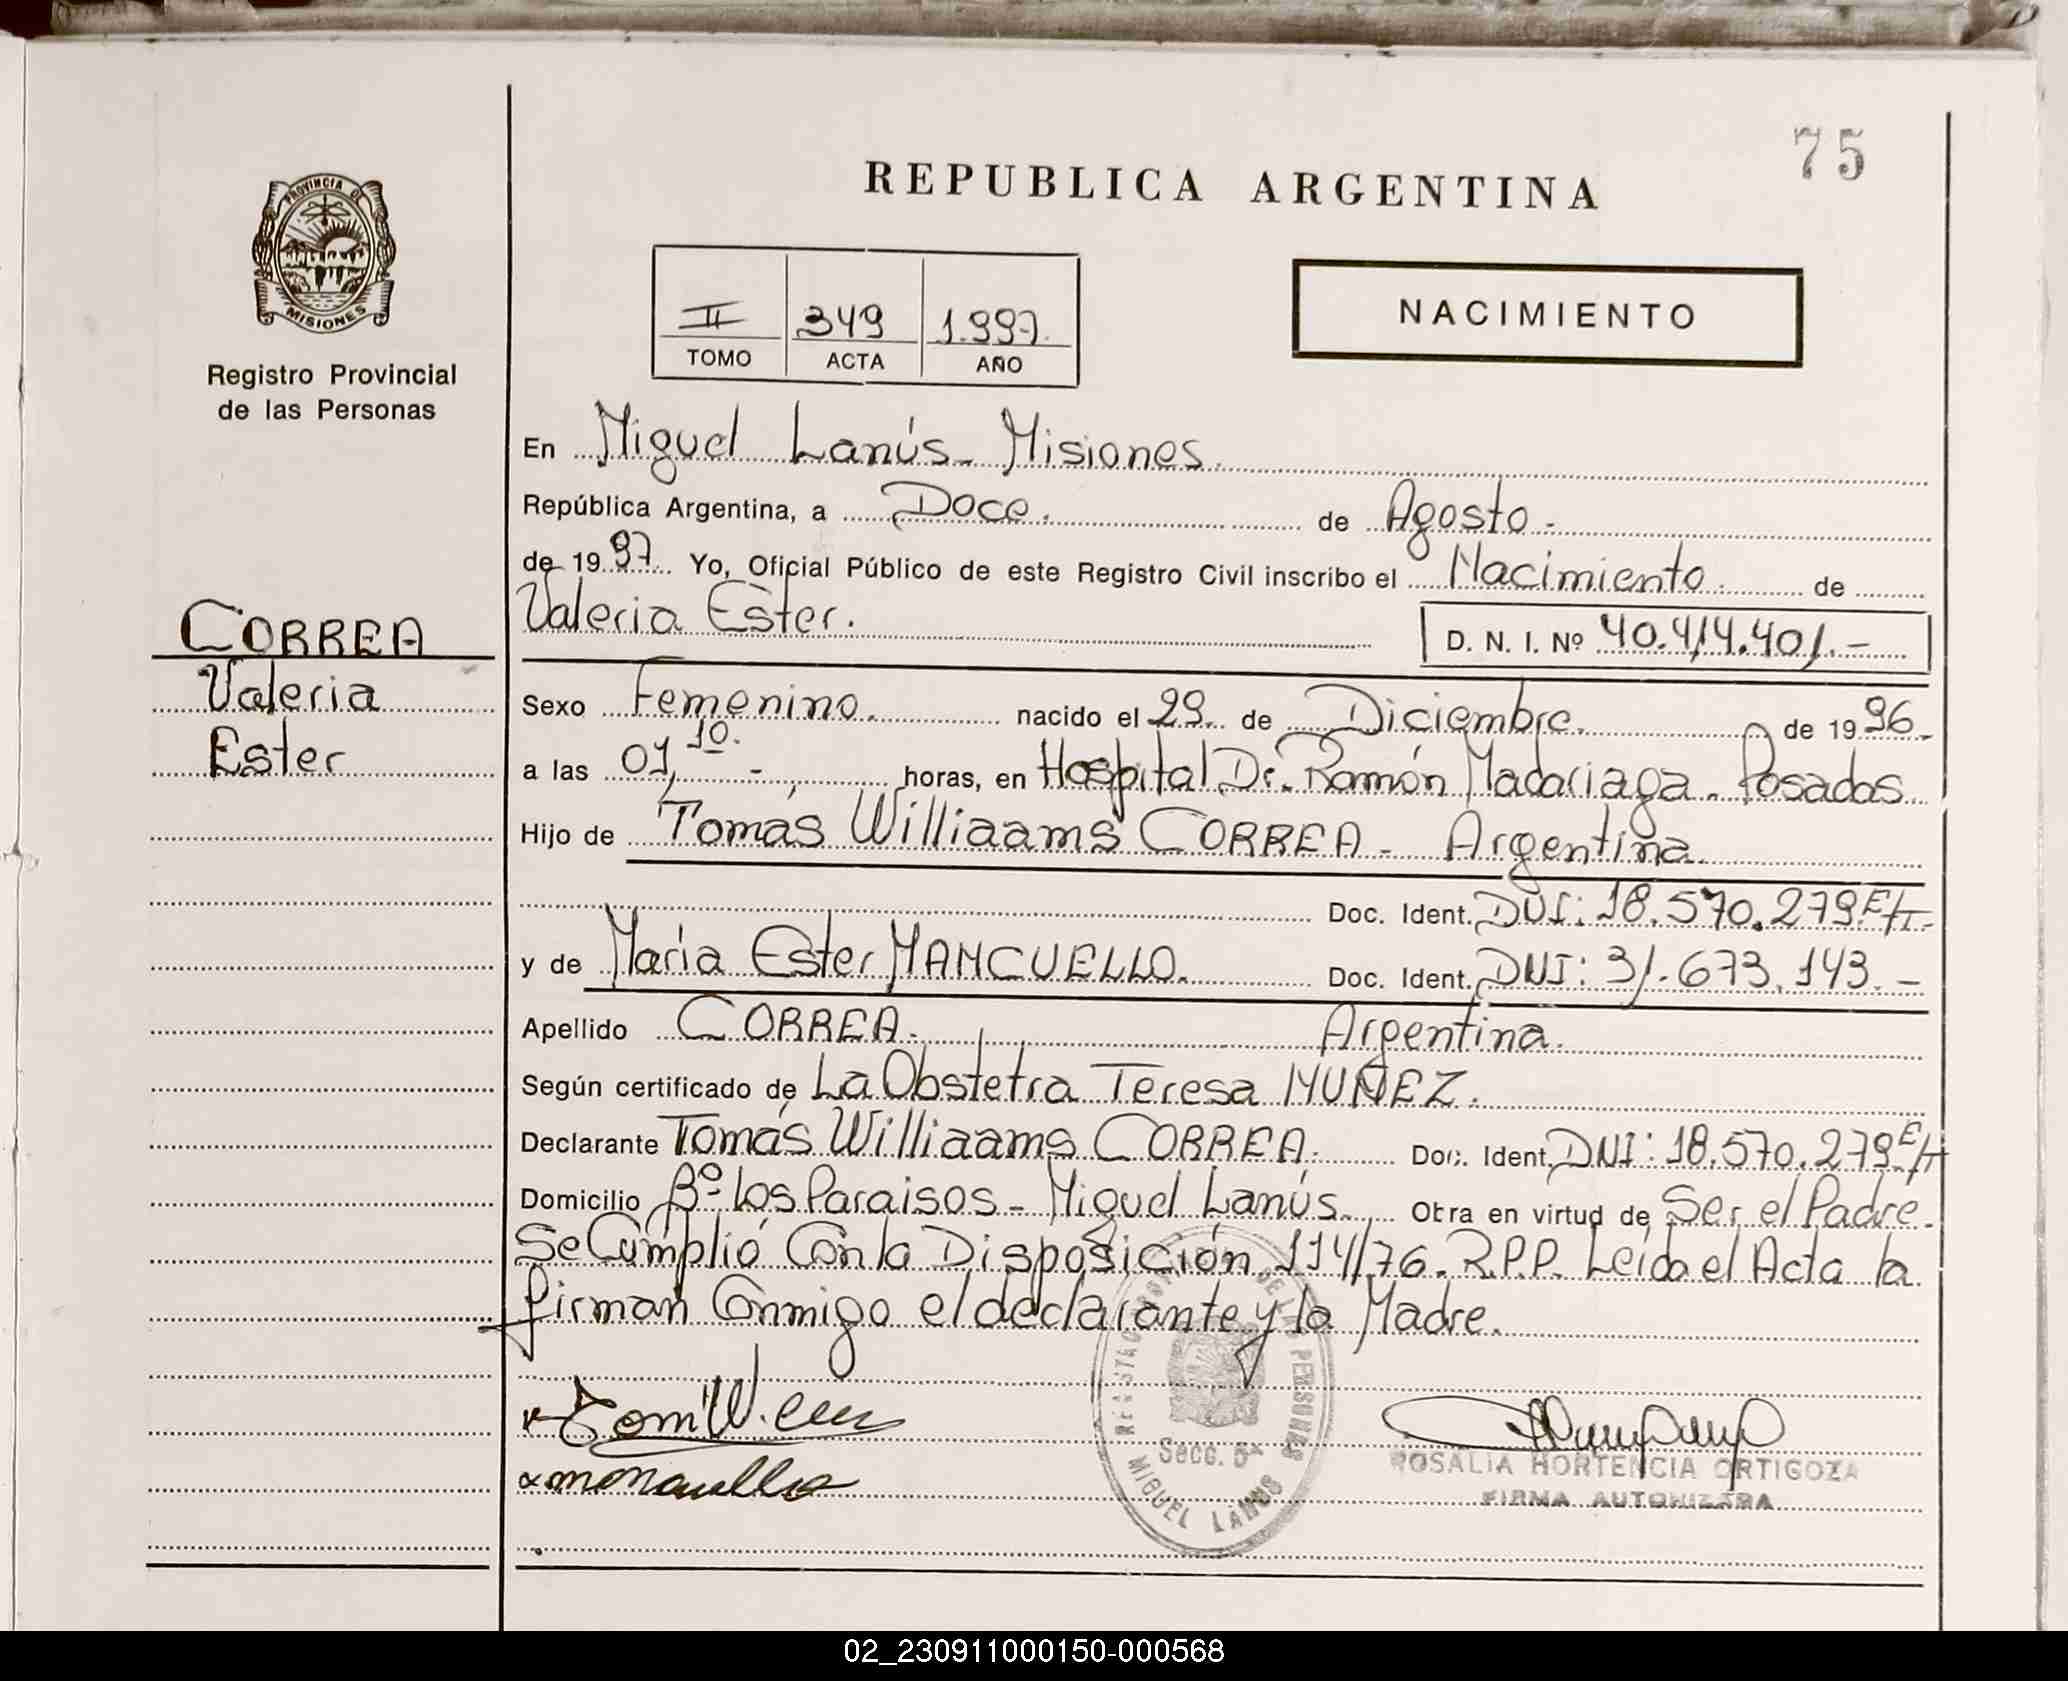 75
REPUBLICA ARGENTINA
PROVINCIA DE
MISIONES
Registro Provincial
de las Personas
II 349 1.997.
TOMO ACTA AÑO
NACIMIENTO
En Miguel Lanús - Misiones.
República Argentina, a Doce. de Agosto.-
de 1997. Yo, Oficial Público de este Registro Civil inscribo el Nacimiento. de
CORREA
Valeria
Ester
Valeria Ester.
D. N. I. Nº 40.414.401.-
Sexo Femenino. nacido el 29. de Diciembre. de 1996.
a las 01,10.-, horas, en Hospital Dr. Ramón Madariaga. Posadas
Hijo de Tomás Williaams CORREA - Argentina
Doc. Ident. DNI: 18.570.279 E/T-
y de Maria Ester MANCUELLO. Doc. Ident. DNI: 31.673.143.-
Apellido CORREA. Argentina.
Según certificado de La Obstetra Teresa MUÑEZ.
Declarante Tomás Williaams CORREA. Doc. Ident. DNI: 18.570.279 E/T
Domicilio Bº Los Paraisos - Miguel Lanús. Otra en virtud de Ser el Padre.
Se Cumplió Con la Disposición 114/76. R.P.P. Leída el Acta la
firman Conmigo el declarante y la Madre.
DE LAS PERSONAS
Secc. 5ª
MIGUEL LANUS
ROSALIA HORTENCIA ORTIGOZA
FIRMA AUTORIZADA
02_230911000150-000568